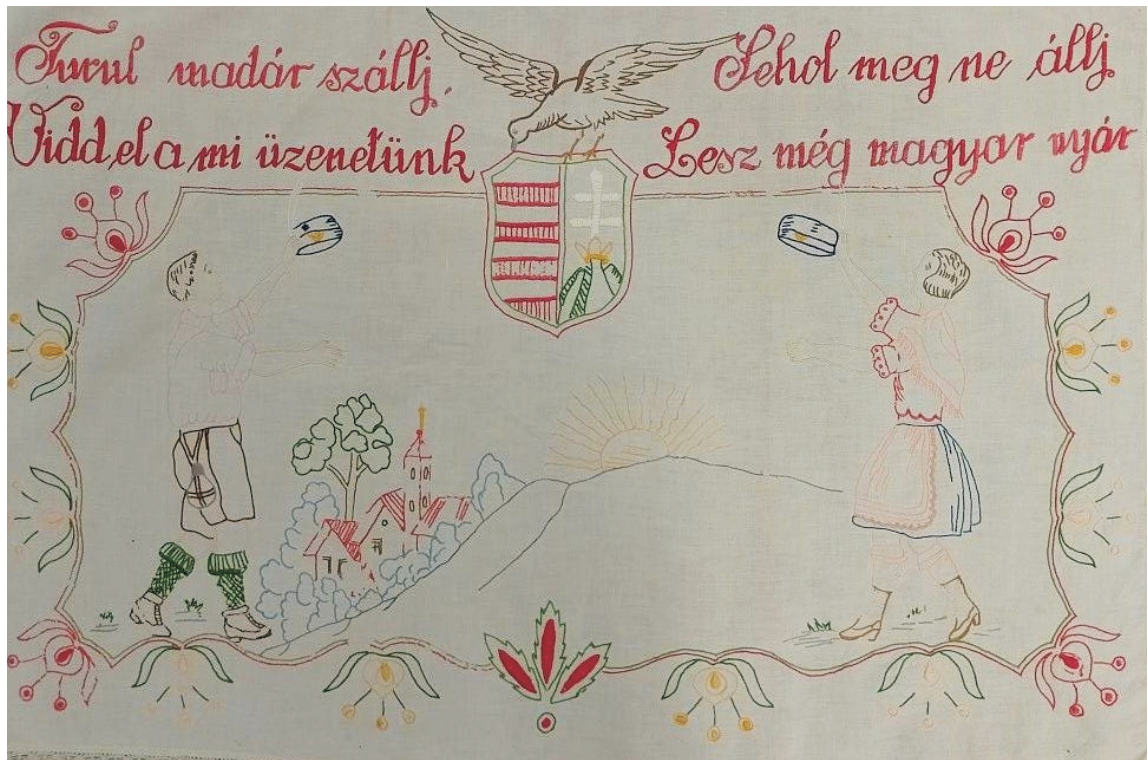 Turul madár szállj,
Vidd el a mi üzenetünk
Sehol meg ne állj
Lesz még magyar nyár